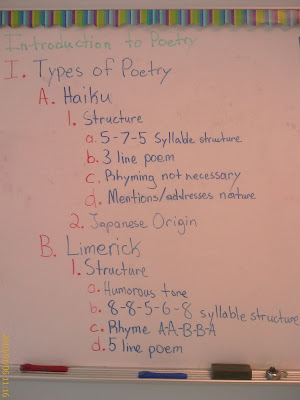 Introduction to Poetry
I. Types of Poetry
A. Haiku
1. Structure
a. 5-7-5 Syllable structure
b. 3 line poem
c. Rhyming not necessary
d. Mentions/addresses nature
2. Japanese Origin
B. Limerick
1. Structure
a. Humorous tone
b. 8-8-5-6-8 syllable structure
c. Rhyme A-A-B-B-A
d. 5 line poem